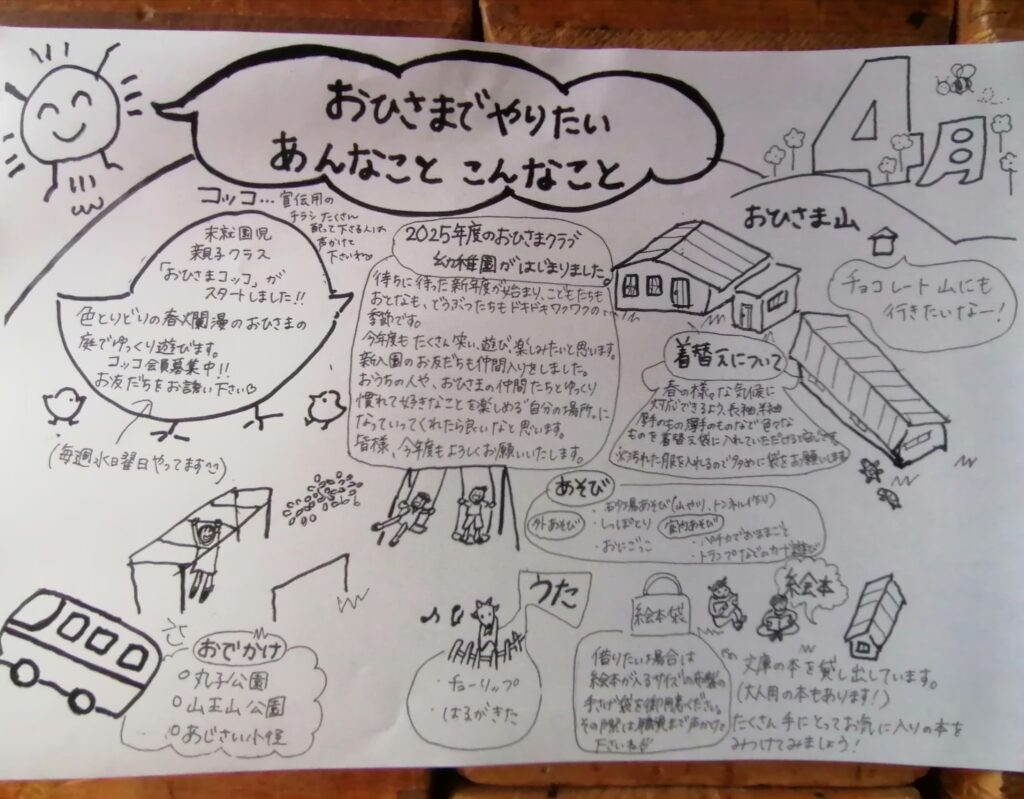 おひさまでやりたい
あんなこと こんなこと
4月
おひさま山
チョコレート山にも
行きたいなー!
コッコ…宣伝用の
チラシたくさん
配って下さる人は
声かけて
下さいね♡
未就園児
親子クラス
「おひさまコッコ」が
スタートしました!!
色とりどりの春爛漫のおひさまの
庭でゆっくり遊びます。
コッコ会員募集中!!
お友だちをお誘い下さい♡
(毎週水曜日やってます)
2025年度のおひさまクラブ
幼稚園がはじまりました。
待ちに待った新年度が始まり、こどもたちも
おとなも、どうぶつたちもドキドキワクワクの
季節です。
今年度もたくさん笑い、遊び、楽しみたいと思います。
新入園のお友だちも仲間入りをしました。
おうちの人や、おひさまの仲間たちとゆっくり
慣れて好きなことを楽しめる"自分の場所"に
なっていってくれたら良いなと思います。
皆様、今年度もよろしくお願いいたします。
着替えについて
春の様々な気候に
対応できるよう、長袖、半袖
薄手のもの厚手のものなど色々な
ものを着替え袋に入れていただけると
※汚れた服を入れるので多めに袋をお願いします
あそび
外あそび
・砂場あそび(山やり、トンネル作り)
・しっぽとり
・おにごっこ
室内あそび
・パチカでおままごと
・トランプなどのカード遊び
おでかけ
○丸子公園
○山王山公園
○あじさい小径
うた
・チューリップ
・はるがきた
絵本袋
借りたい場合は
絵本が入るサイズの布製の
手さげ袋を御用意ください。
その際は職員まで声かけて
下さいね
絵本
文庫の本を貸し出しています。
(大人用の本もあります!)
たくさん手にとってお気に入りの本を
みつけてみましょう!